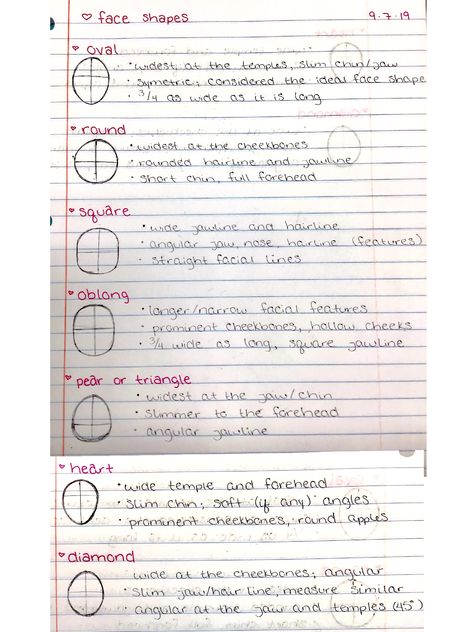 face shapes 9.7.19
oval
• widest at the temples, slim chin/jaw
• symetric; considered the ideal face shape
• 3/4 as wide as it is long
round
• widest at the cheekbones
• rounded hairline and jawline
• short chin, full forehead
square
• wide jawline and hairline
• angular jaw, nose, hairline (features)
• straight facial lines
oblong
• longer/narrow facial features
• prominent cheekbones, hollow cheeks
• 3/4 wide as long, square jawline
pear or triangle
• widest at the jaw/chin
• slimmer to the forehead
• angular jawline
heart
• wide temple and forehead
• slim chin; soft (if any) angles
• prominent cheekbones, round apples
diamond
wide at the cheekbones; angular
• slim jaw/hair line; measure similar
angular at the jaw and temples (45°)